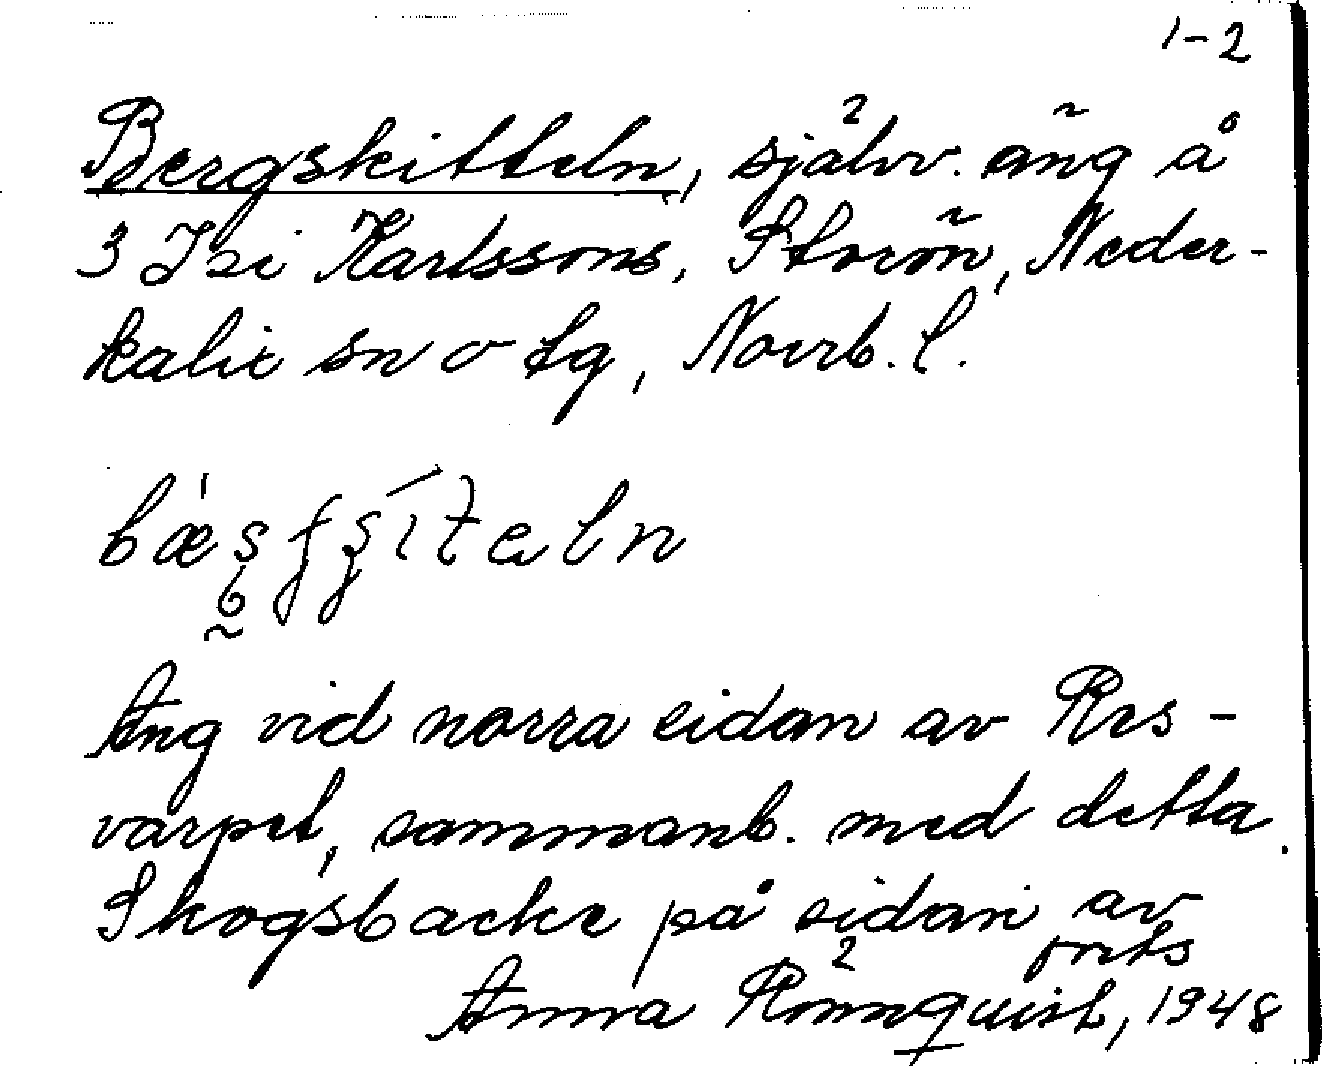 1-2
Bergskitteln, självv. äng å
3 Isi Karlssons, Storön, Neder-
kalix sn o tg, Norrb. l.
Äng vid norra sidan av Res-
varpet, sammanb. med detta.
Skogsbacke på sidan av
forts
Anna Rönnquist, 1948